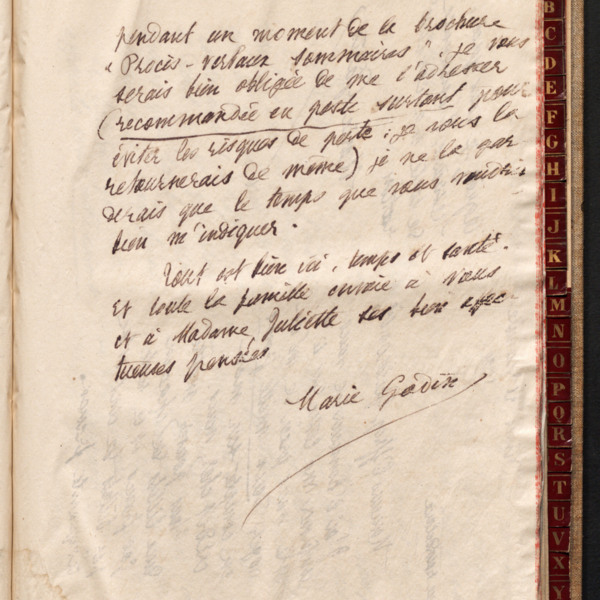 pendant un moment de la brochure
"Procès-verbaux sommaires", je vous
serais bien obligée de me l'adresser
(recommandée en poste surtout pour
éviter les risques de perte : je vous la
retournerais de même) je ne la gar
derais que le temps que vous voudriez
bien m'indiquer.
Tout est bien ici, temps et santé.
Et toute la famille envoie à vous
et à Madame Juliette ses bien affec
tueuses pensées
Marie Godin
B
C
D
E
F
G
H
I
J
K
L
M
N
O
P
Q
R
S
T
U
V
X
Y